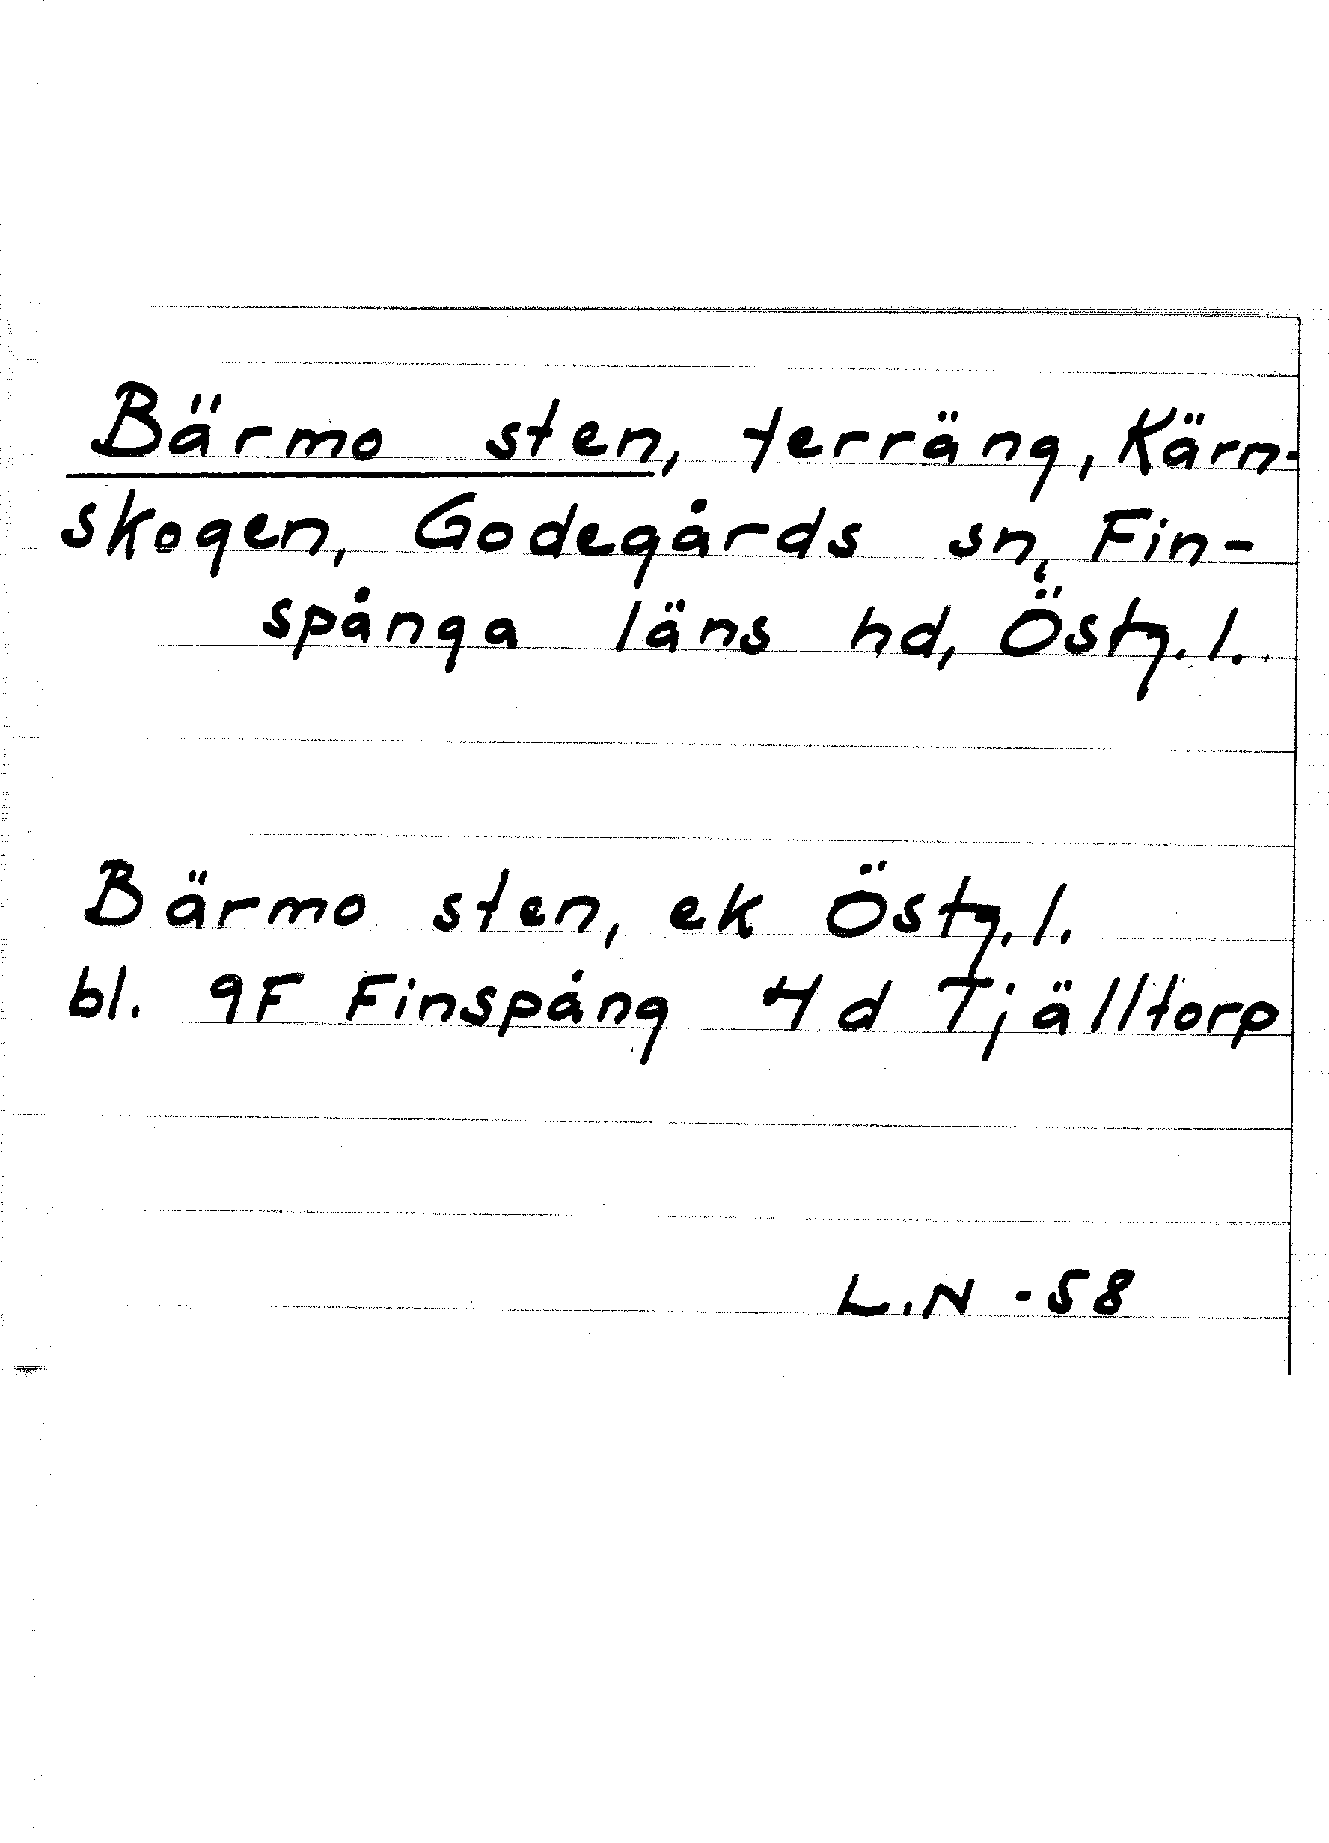 Bärmo sten, terräng, Kärn-
skogen, Godegårds sn, Fin-
spånga läns hd, Östg. l.
Bärmo sten, ek Östg. l.
bl. 9F Finspång 4 d Tjälltorp
L.N -58